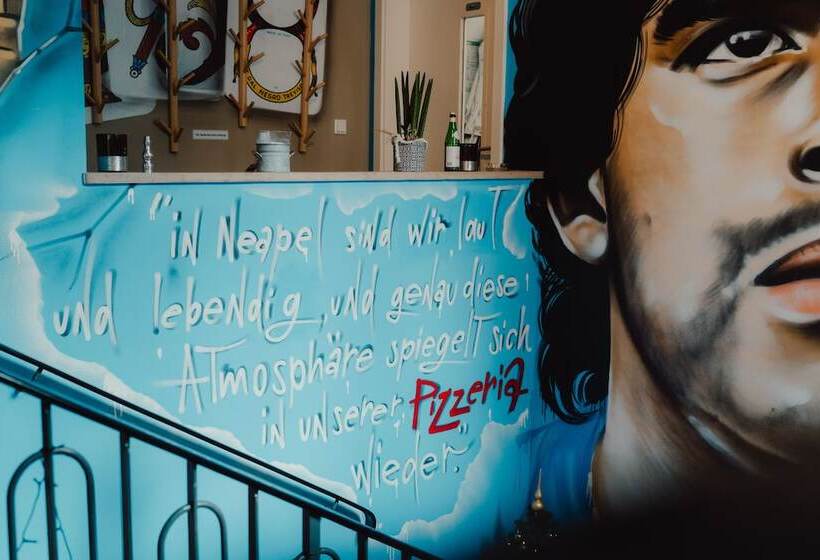 "in Neapel sind wir laut
und lebendig, und genau diese
Atmosphäre spiegelt sich
in unserer Pizzeria
wieder."